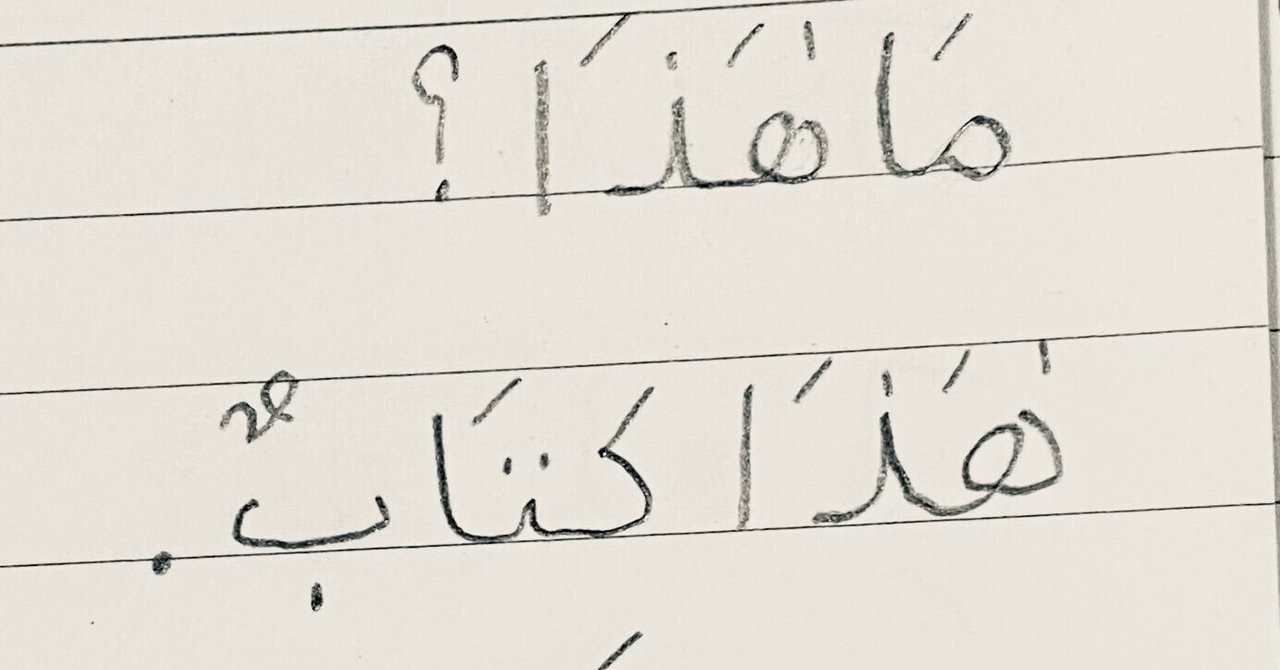 مَا هَٰذَا؟
هَٰذَا كتَابٌ.